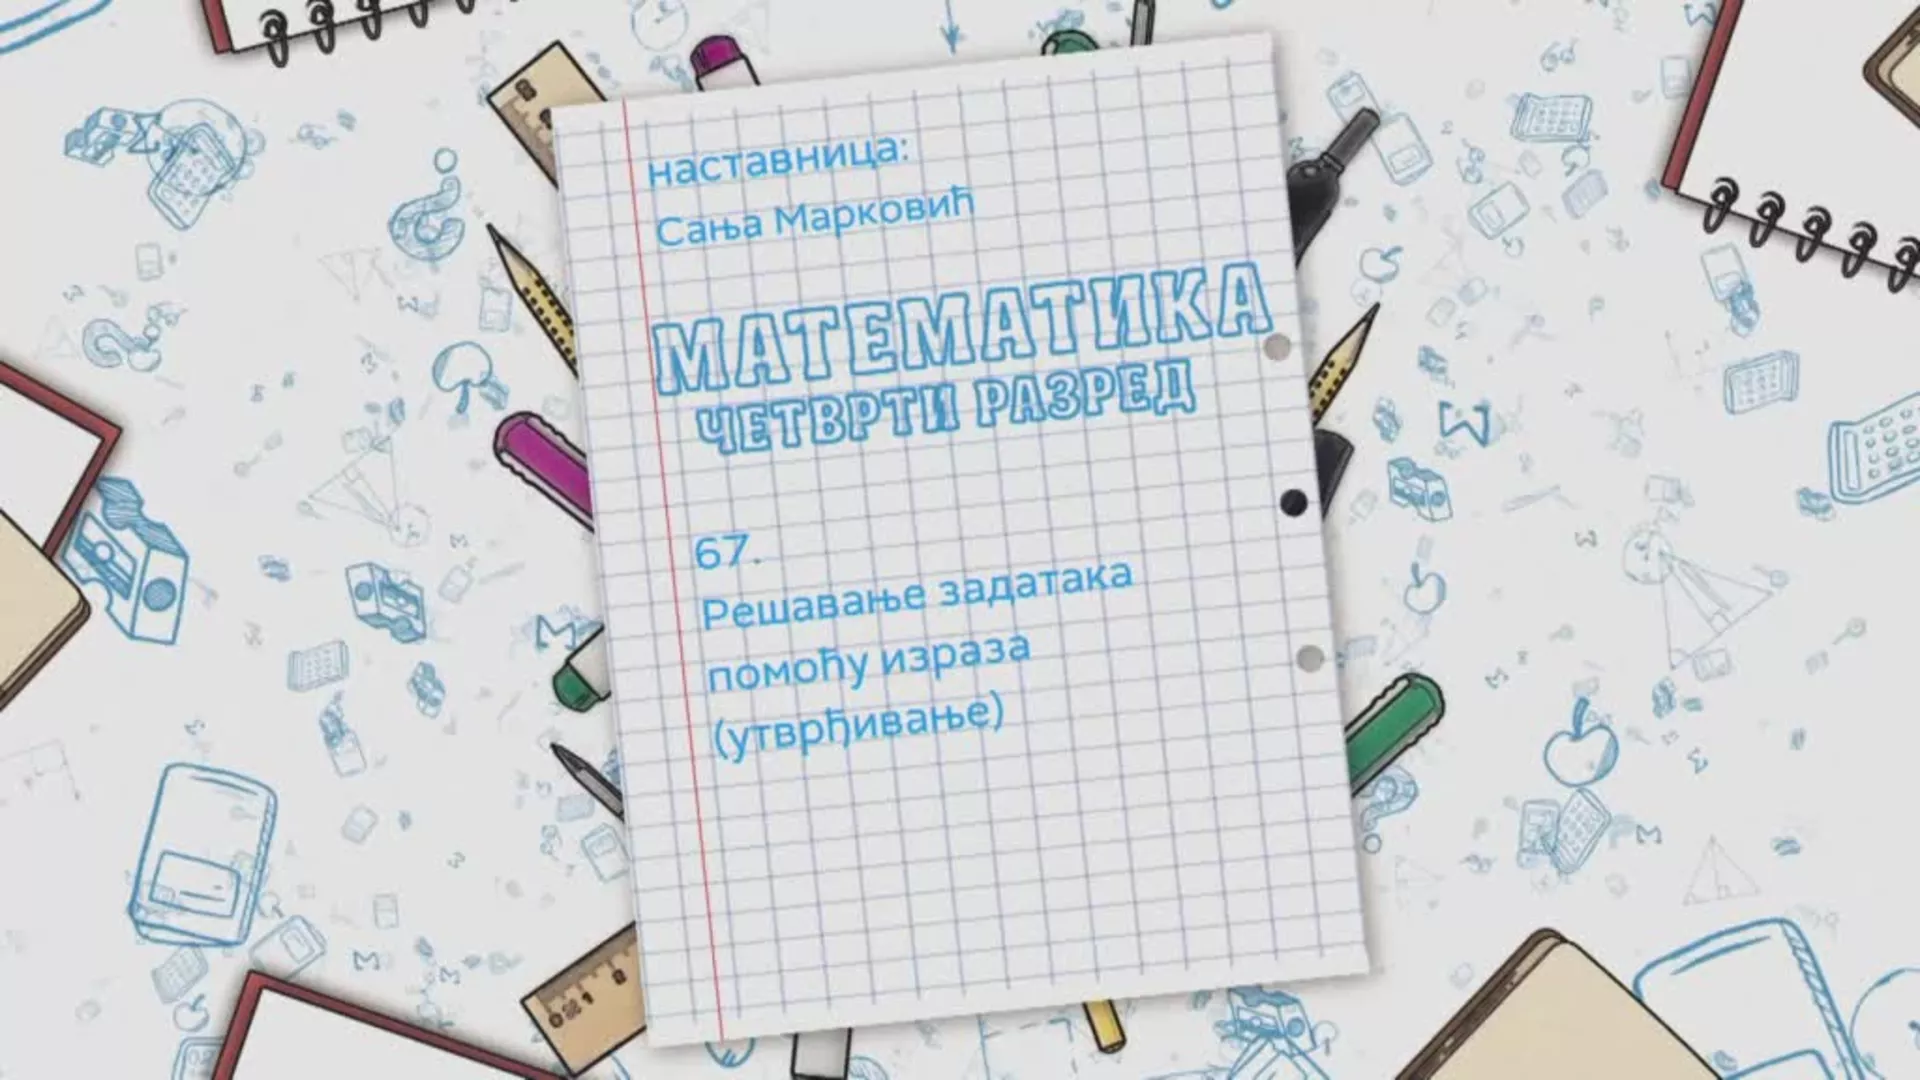 наставница:
Сања Марковић
МАТЕМАТИКА
ЧЕТВРТИ РАЗРЕД
67.
Решавање задатака
помоћу израза
(утврђивање)